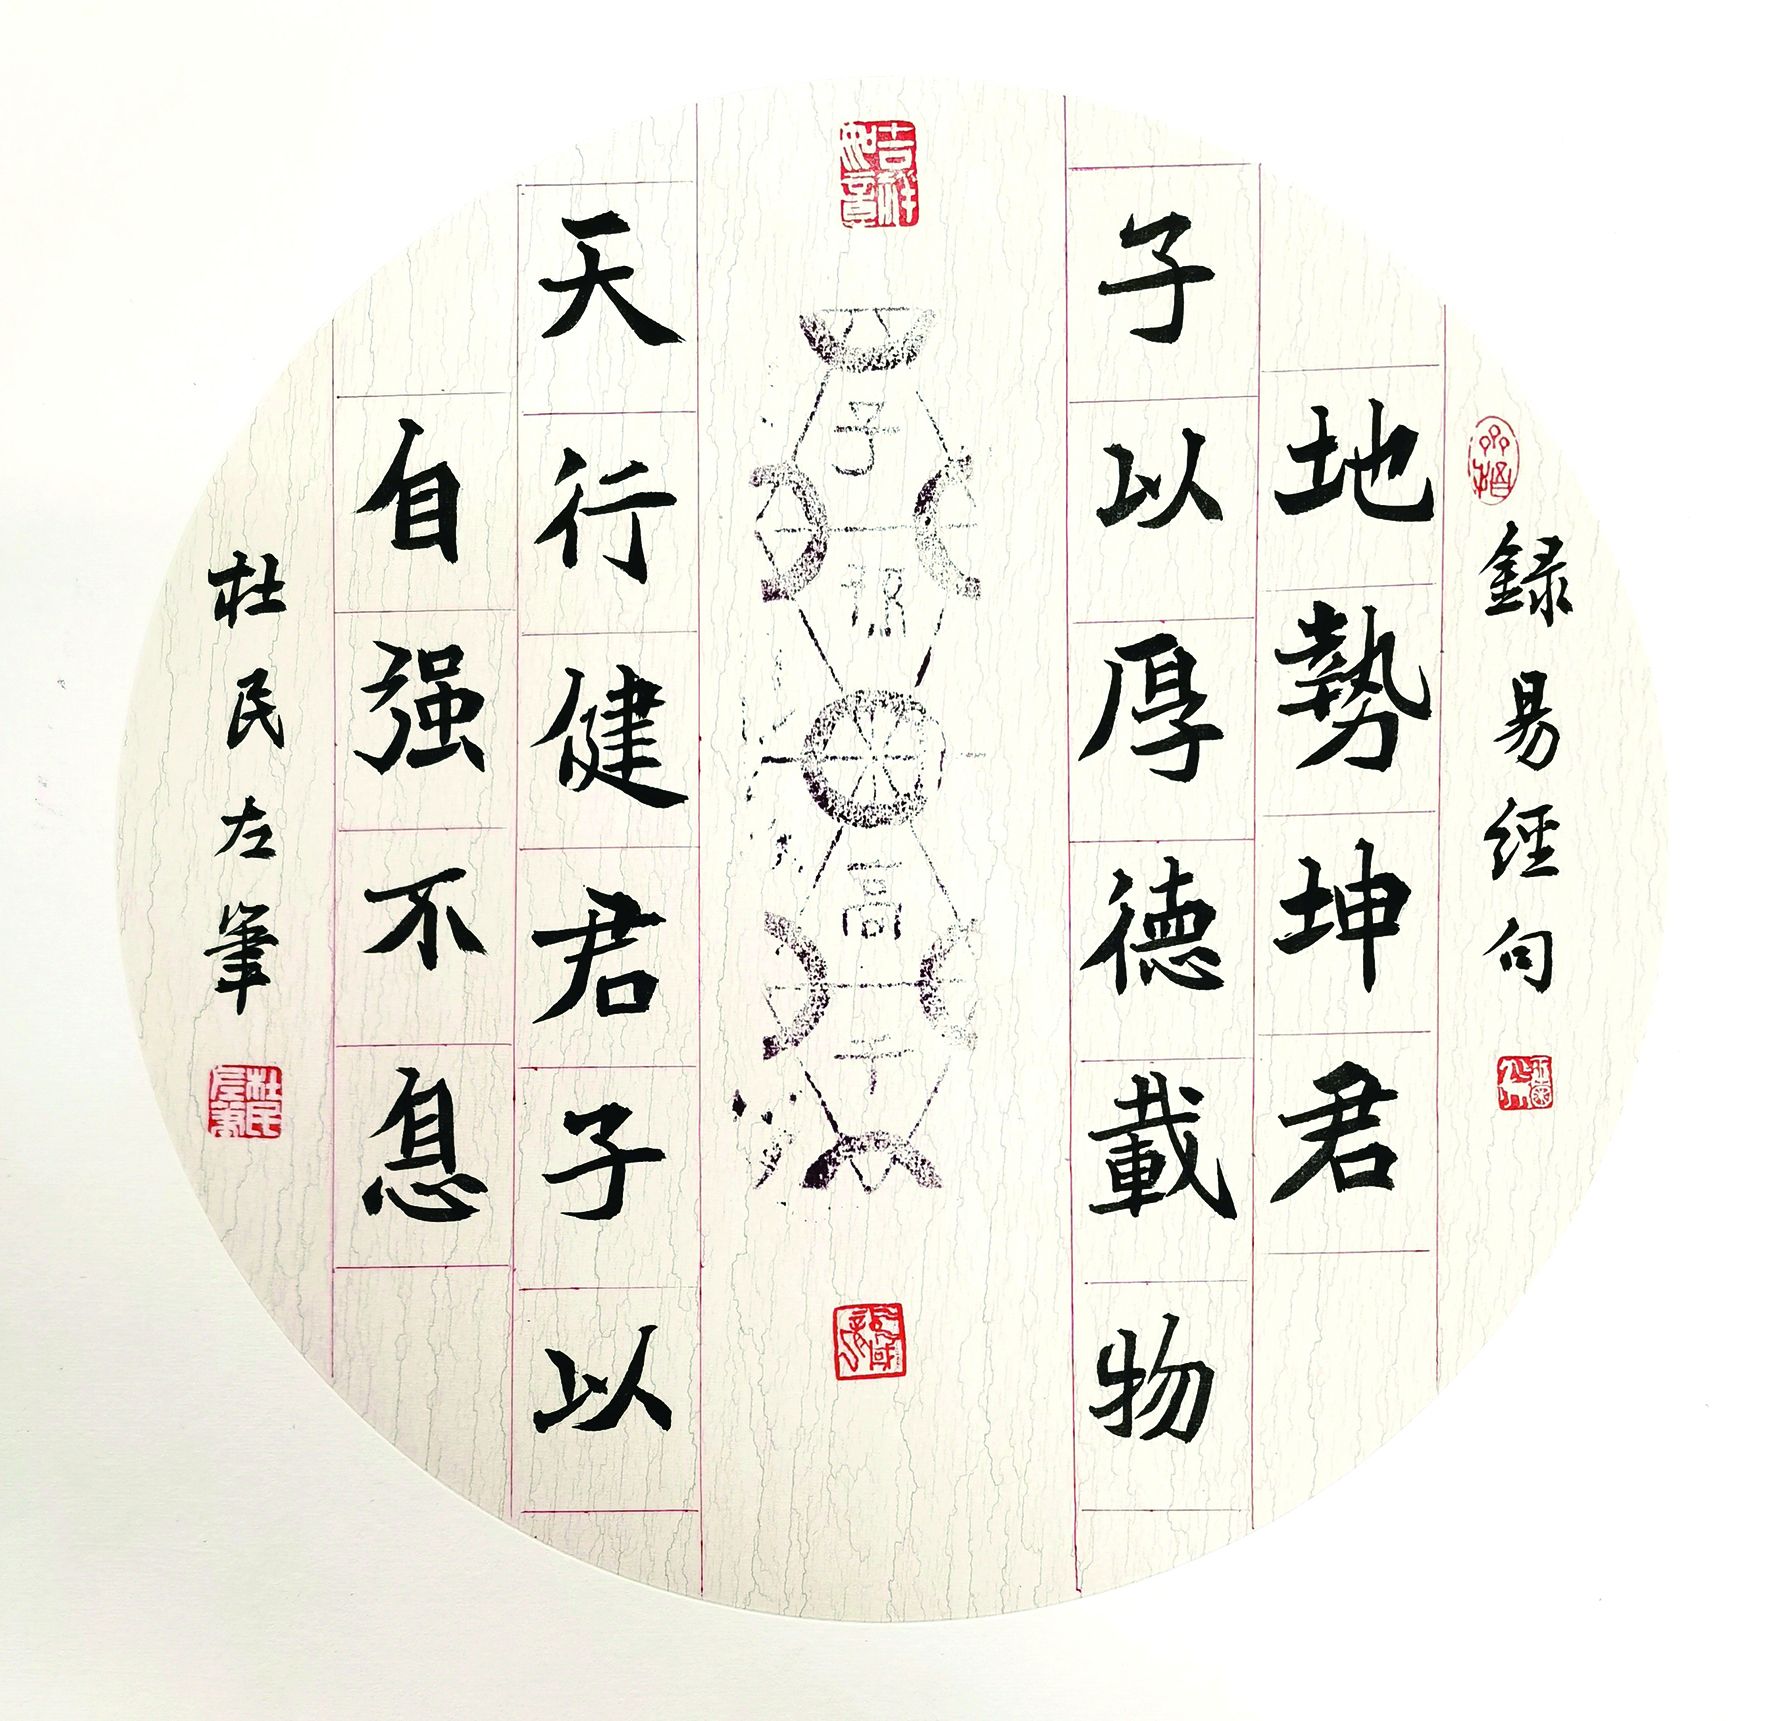 録易經句
地勢坤君
子以厚德載物
吉祥如意
子
高
天行健君子以
自强不息
杜民左筆
杜民左筆